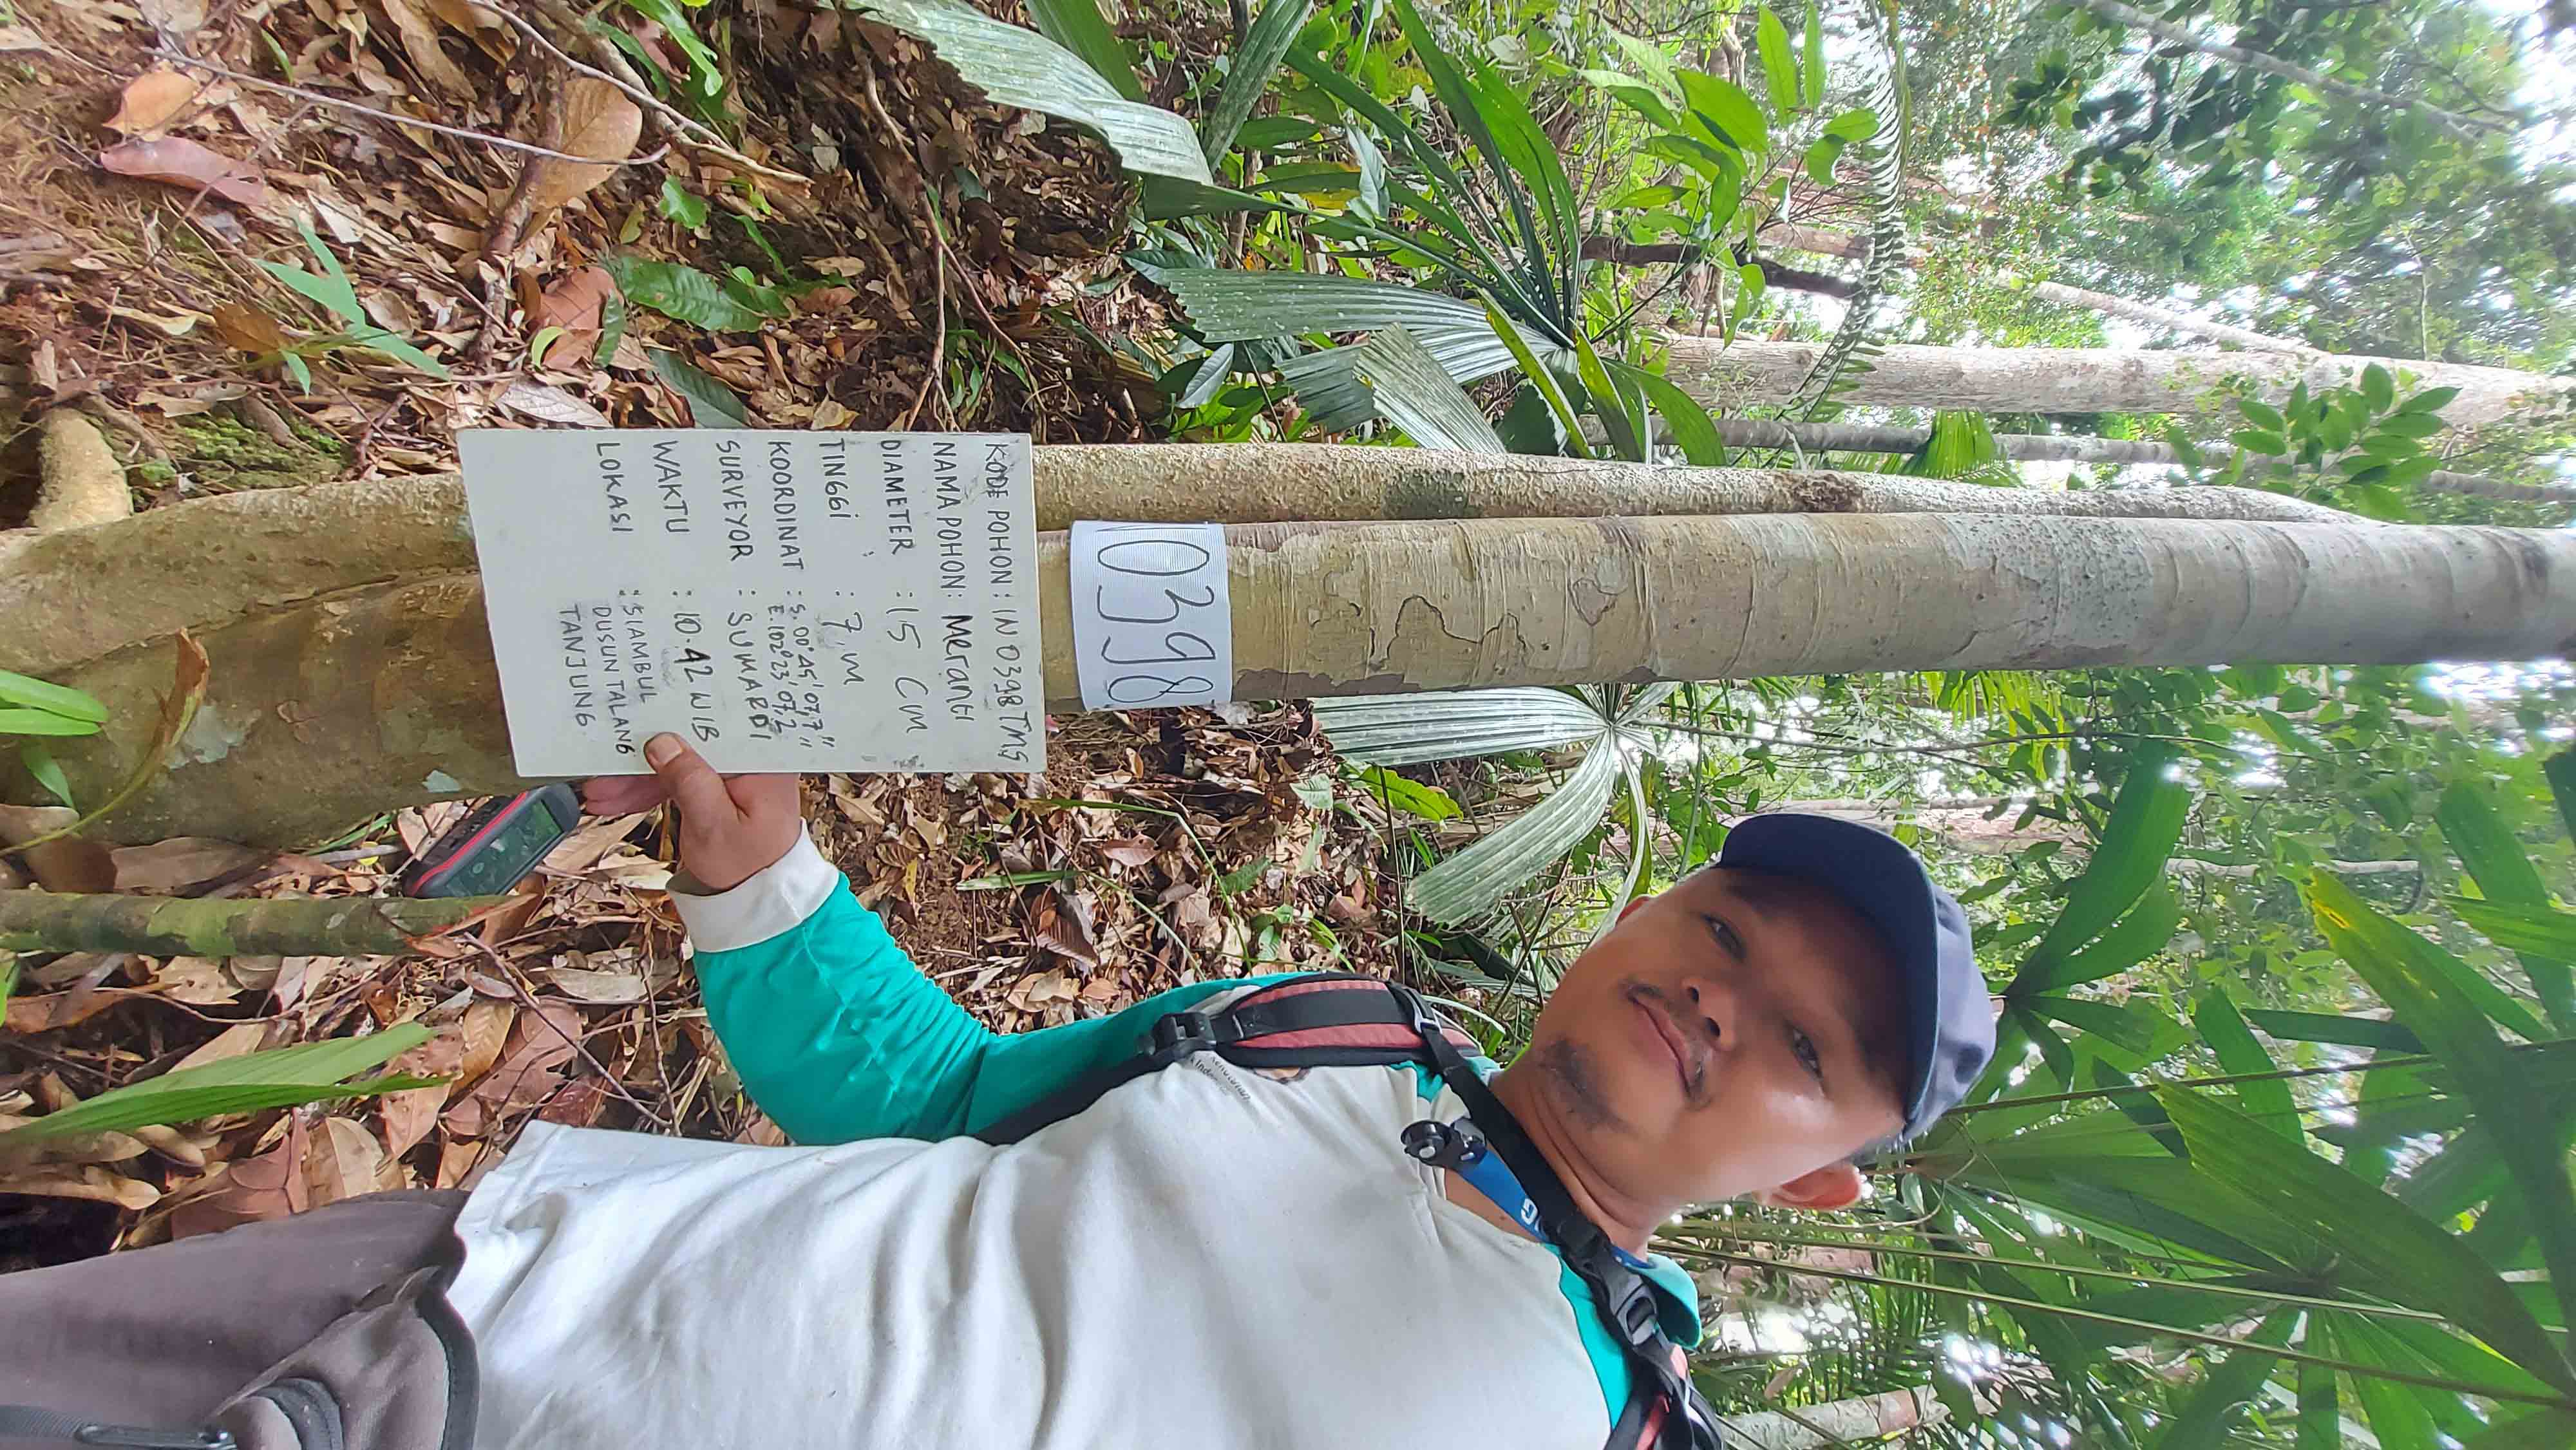 KODE POHON : IN 0398 TMG
NAMA POHON : Meranti
DIAMETER : 15 CM
TINGGI : 7 M
KOORDINAT : S. 00° 45' 07,7"
E. 102° 23' 07,2"
SURVEYOR : SUWARDI
WAKTU : 10.42 WIB
LOKASI : SIAMBUL
DUSUN TALANG
TANJUNG.
0398